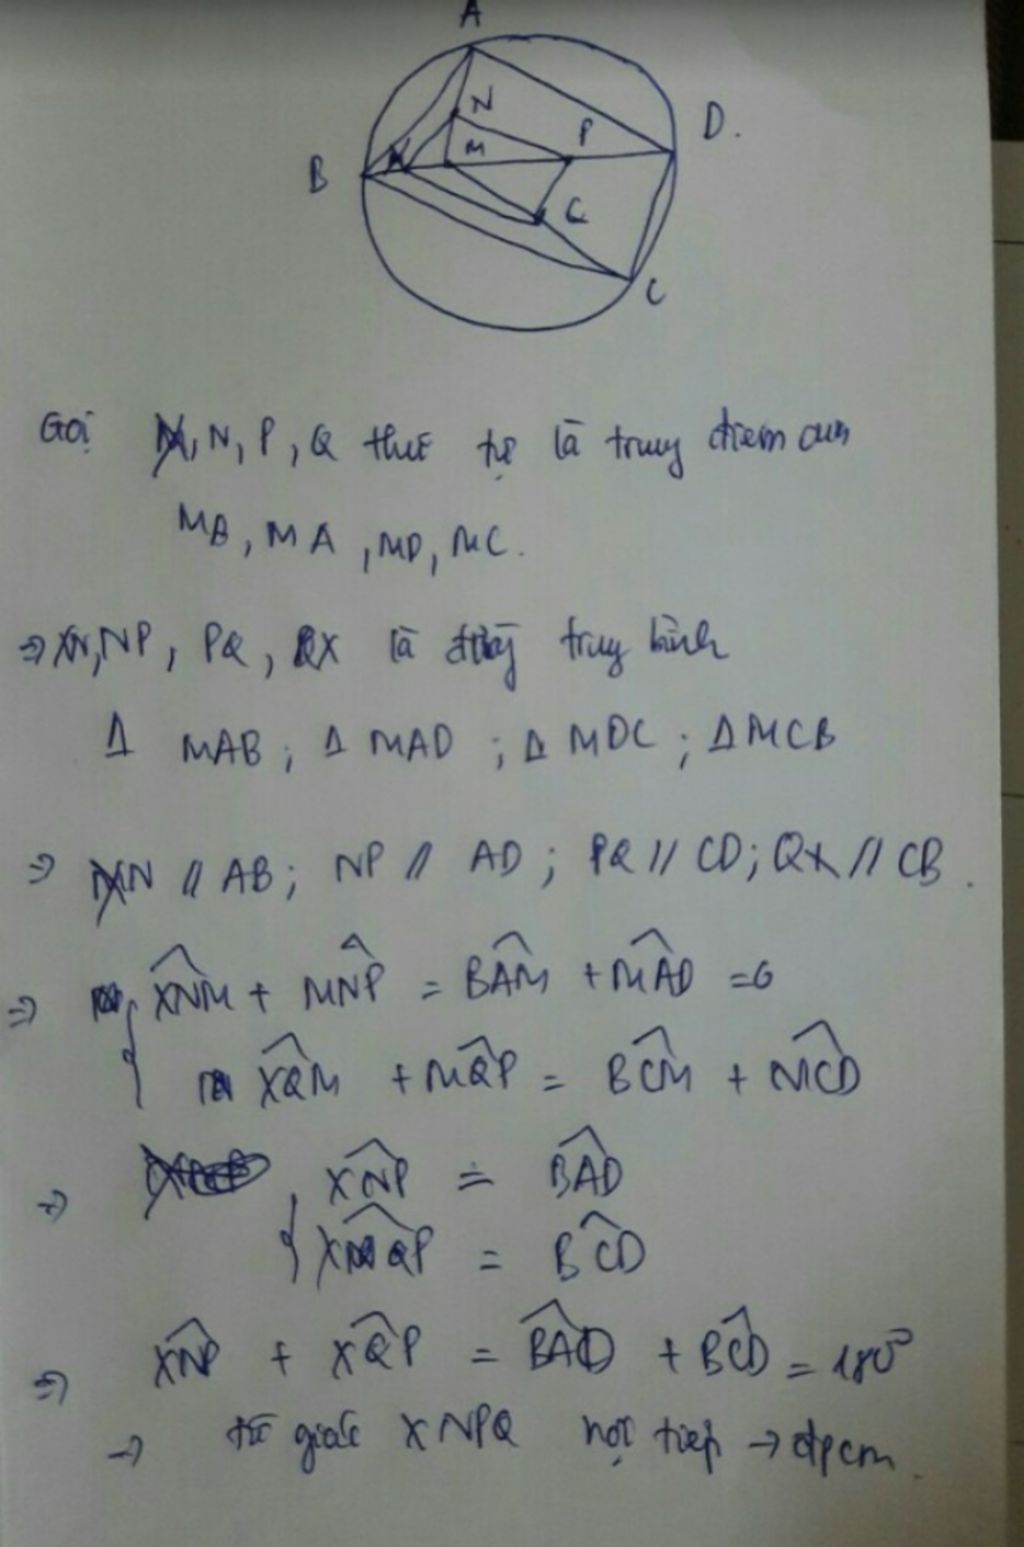 A
N
P
D.
B
M
C
C
Gọi X, N, P, Q thứ tự là trung điểm của
MB, MA, MD, MC.
=> XN, NP, PQ, QX là đường trung bình
Δ MAB; Δ MAD; Δ MDC; Δ MCB
=> XN // AB; NP // AD; PQ // CD; QX // CB.
=> { XNM + MNP = BAM + MAD = 6
XQM + MQP = BCM + MCD
=> { XNP = BAD
XQP = BCD
=> XNP + XQP = BAD + BCD = 180°
-> tứ giác XNPQ nội tiếp -> đpcm.